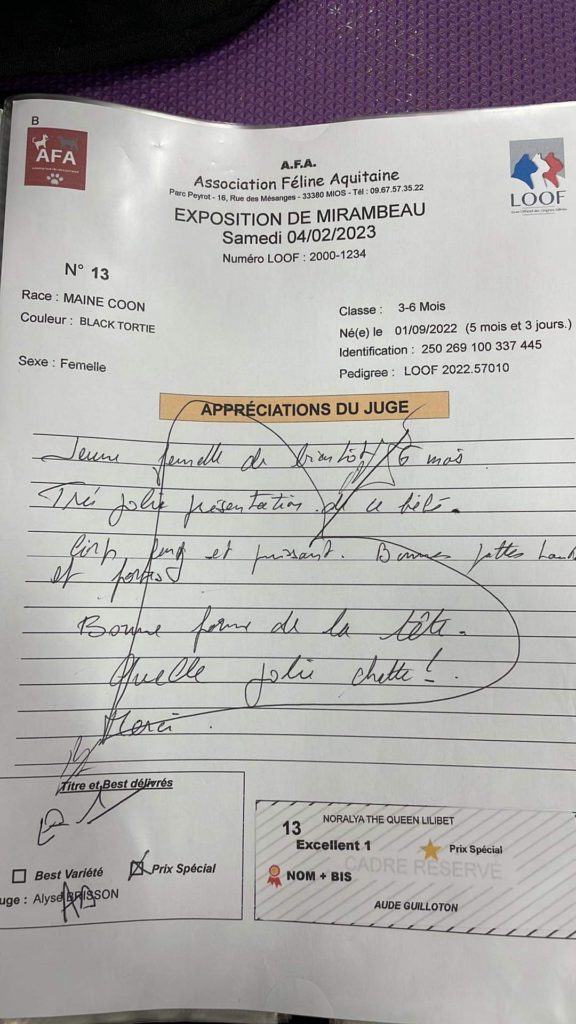 B
AFA
A.F.A.
Association Féline Aquitaine
Parc Peyrot - 16, Rue des Mésanges - 33380 MIOS - Tél : 09.67.57.35.22
EXPOSITION DE MIRAMBEAU
Samedi 04/02/2023
Numéro LOOF : 2000-1234
LOOF
N° 13
Race : MAINE COON
Couleur : BLACK TORTIE
Sexe : Femelle
Classe : 3-6 Mois
Né(e) le 01/09/2022 (5 mois et 3 jours.)
Identification : 250 269 100 337 445
Pedigree : LOOF 2022.57010
APPRÉCIATIONS DU JUGE
Jeune femelle de bientôt 6 mois
Trés jolie présentation de ce bébé.
Corp long et puissant. Bonnes pattes
et fortes
Bonne forme de la tête.
Quelle jolie chatte !
Merci.
Titre et Best délivrés
Ex 1
Best Variété
Prix Spécial
uge : Alyse BRISSON
13 NORALYA THE QUEEN LILIBET
Excellent 1
Prix Spécial
CADRE RÉSERVÉ
NOM + BIS
AUDE GUILLOTON